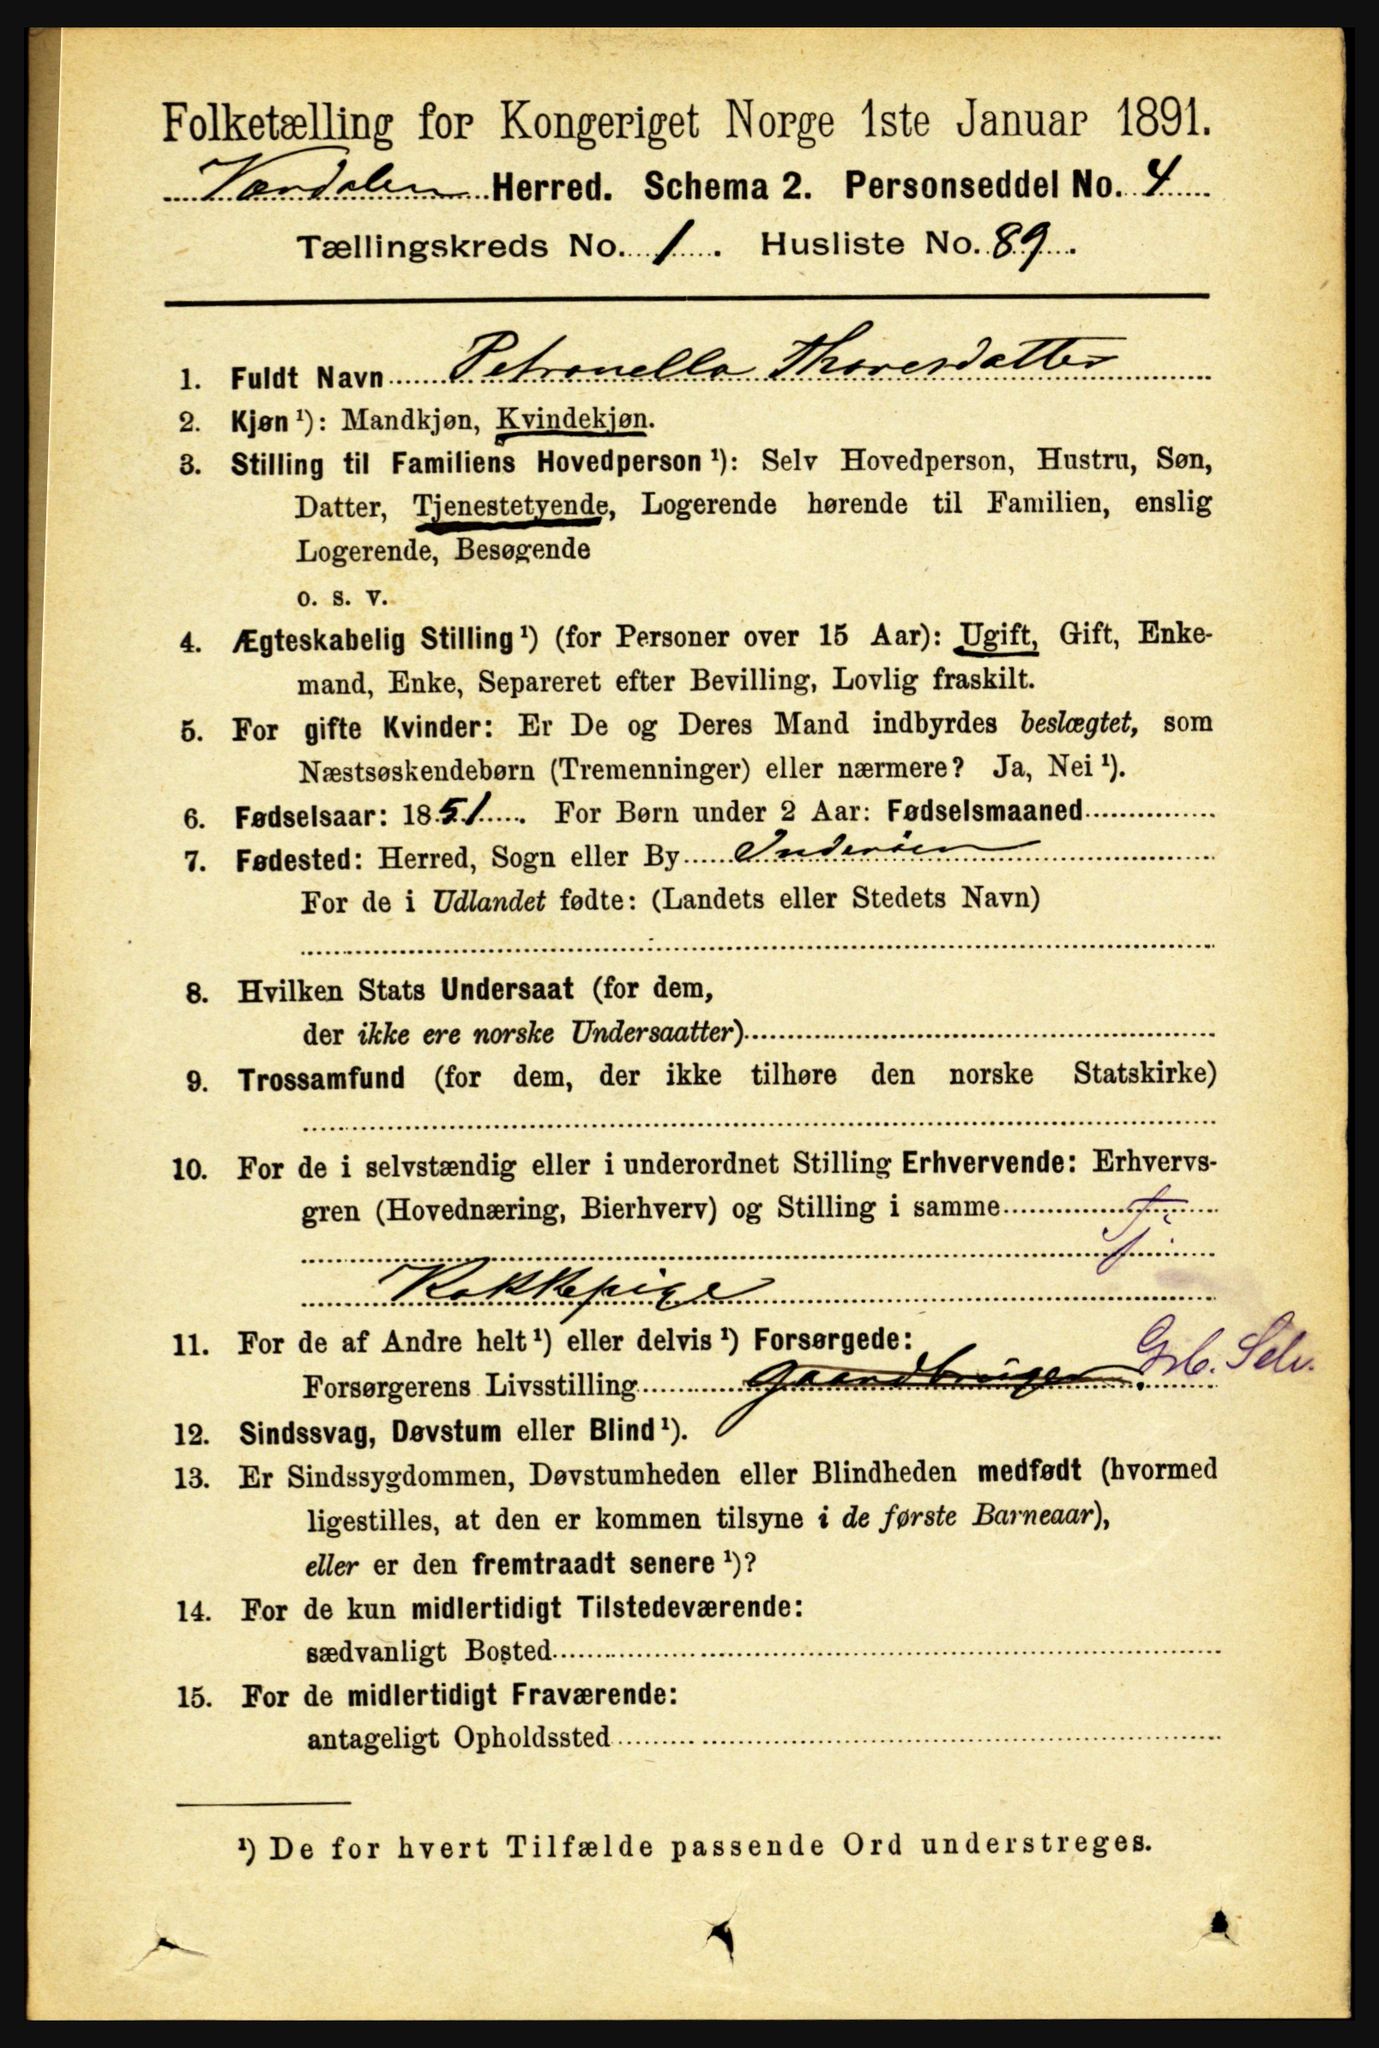 Folketælling for Kongeriget Norge 1ste Januar 1891.
Værdalen Herred. Schema 2. Personseddel No. 4
Tællingskreds No. 1. Husliste No. 89.
1. Fuldt Navn Petronella Thoresdatter
2. Kjøn ¹): Mandkjøn, Kvindekjøn.
3. Stilling til Familiens Hovedperson ¹): Selv Hovedperson, Hustru, Søn,
Datter, Tjenestetyende, Logerende hørende til Familien, enslig
Logerende, Besøgende
o. s. v.
4. Ægteskabelig Stilling ¹) (for Personer over 15 Aar): Ugift, Gift, Enke-
mand, Enke, Separeret efter Bevilling, Lovlig fraskilt.
5. For gifte Kvinder: Er De og Deres Mand indbyrdes beslægtet, som
Næstsøskendebørn (Tremenninger) eller nærmere? Ja, Nei ¹).
6. Fødselsaar: 1851. For Børn under 2 Aar: Fødselsmaaned
7. Fødested: Herred, Sogn eller By Inderøen
For de i Udlandet fødte: (Landets eller Stedets Navn)
8. Hvilken Stats Undersaat (for dem,
der ikke ere norske Undersaatter)
9. Trossamfund (for dem, der ikke tilhøre den norske Statskirke)
10. For de i selvstændig eller i underordnet Stilling Erhvervende: Erhvervs-
gren (Hovednæring, Bierhverv) og Stilling i samme
Tj.
Kokkepige
11. For de af Andre helt ¹) eller delvis ¹) Forsørgede:
Grb. Selv.
Forsørgerens Livsstilling Gaardbruger
12. Sindssvag, Døvstum eller Blind ¹).
13. Er Sindssygdommen, Døvstumheden eller Blindheden medfødt (hvormed
ligestilles, at den er kommen tilsyne i de første Barneaar),
eller er den fremtraadt senere ¹)?
14. For de kun midlertidigt Tilstedeværende:
sædvanligt Bosted
15. For de midlertidigt Fraværende:
antageligt Opholdssted
¹) De for hvert Tilfælde passende Ord understreges.